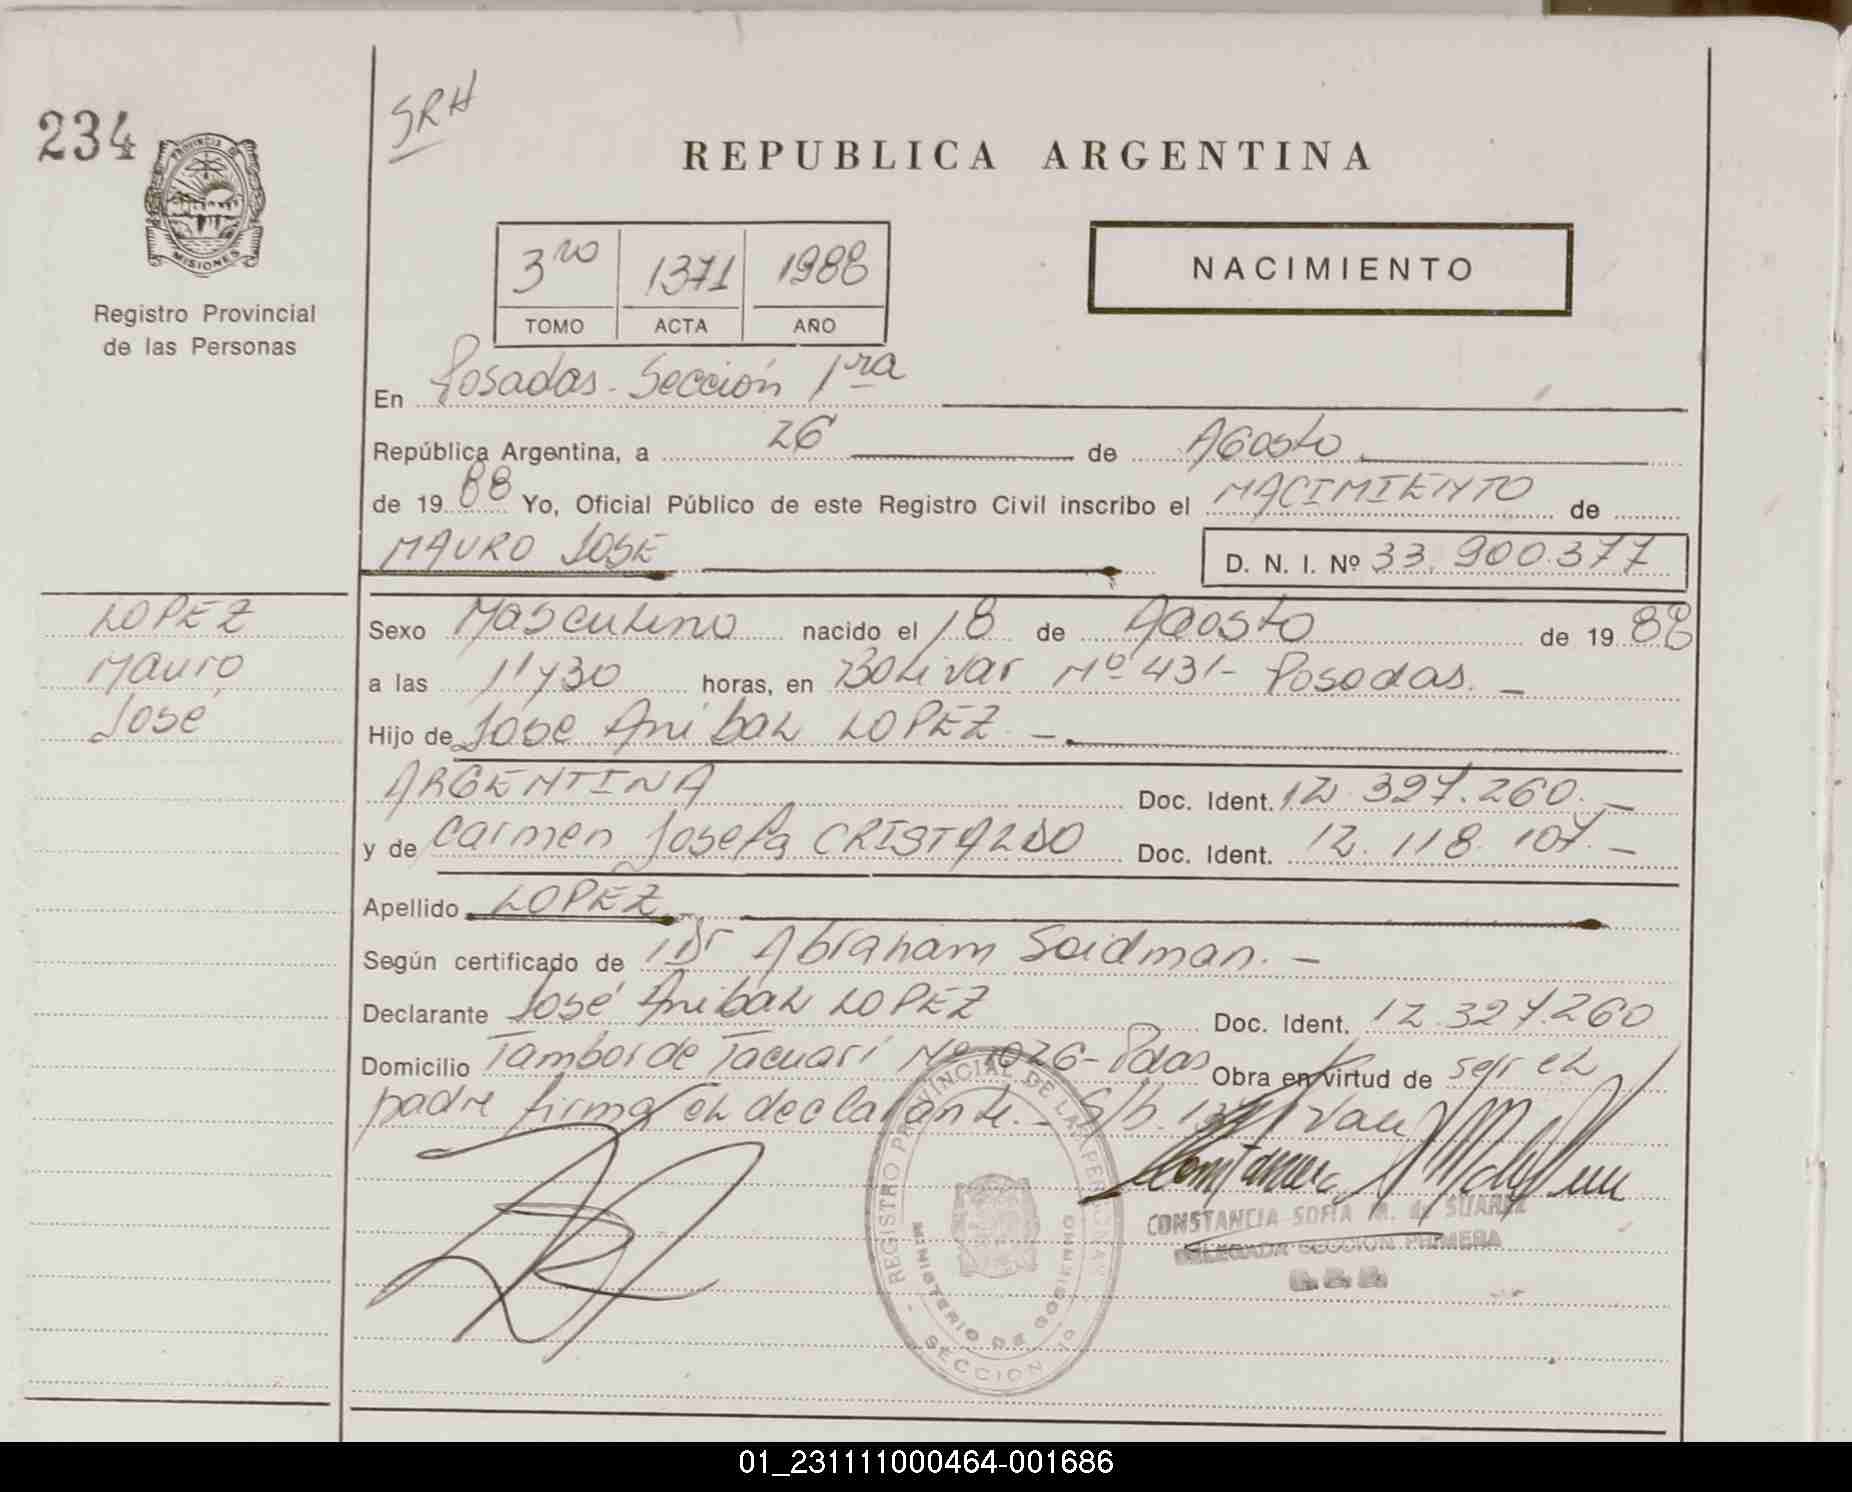 234
SRH
PROVINCIA DE
MISIONES
Registro Provincial
de las Personas
REPUBLICA ARGENTINA
NACIMIENTO
3ro 1371 1988
TOMO ACTA AÑO
En Posadas - Sección 1ra
República Argentina, a 26 de Agosto
de 1988 Yo, Oficial Público de este Registro Civil inscribo el NACIMIENTO de
MAURO JOSE D. N. I. Nº 33.900.377
LOPEZ
Mauro
José
Sexo Masculino nacido el 18 de Agosto de 1988
a las 11y30 horas, en Bolivar Nº 431- Posadas. -
Hijo de Jose Anibal LOPEZ -
ARGENTINA Doc. Ident. 12.327.260. -
y de Carmen Josefa CRISTALDO Doc. Ident. 12.118.107. -
Apellido LOPEZ
Según certificado de Dr Abraham Saidman. -
Declarante José Anibal LOPEZ Doc. Ident. 12.327.260
Domicilio Tambor de Tacuari Nº 1026- Pdas Obra en virtud de ser el
padre firma el declarante. - S/b. Vale
REGISTRO PROVINCIAL DE LAS PERSONAS
MINISTERIO DE GOBIERNO
SECCION 1º
CONSTANCIA SOFIA M. de SUAREZ
DELEGADA SECCION PRIMERA
01_231111000464-001686